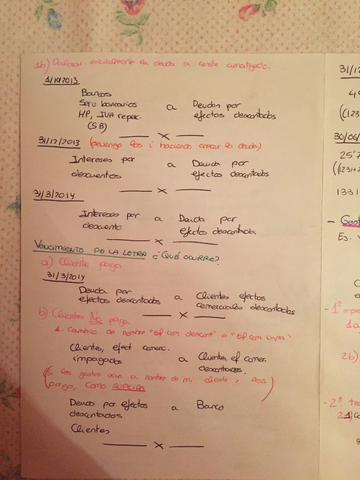 1b) Valorar inicialmente la deuda a coste amortizado.
1/10/2013
Bancos
Serv bancarios
HP, IVA repec.
(SB)
a
Deudas por
efectos descontados
x
31/12/2013 (devengo los i haciendo crecer la deuda)
Intereses por
descuentos
a
Deuda por
efectos descontados
x
3/3/2014
Intereses por
descuento
a
Deuda por
efectos descontados
x
VENCIMIENTO DE LA LETRA ¿QUÉ OCURRE?
a) Cliente paga
31/3/2014
Deuda por
efectos descontados
a
Clientes efectos
comerciales descontados
x
b) Cliente No paga
1. Cambio de nombre
Clientes, efect comerc.
impagados
a
Clientes ef comer.
descontados.
los gastos van a nombre de mi cliente,
pago, como
Deuda por efectos
descontados
Clientes
a
Banco
x
31/12
30/06/
133 1
Es.
-1º
da
2b)
-2º